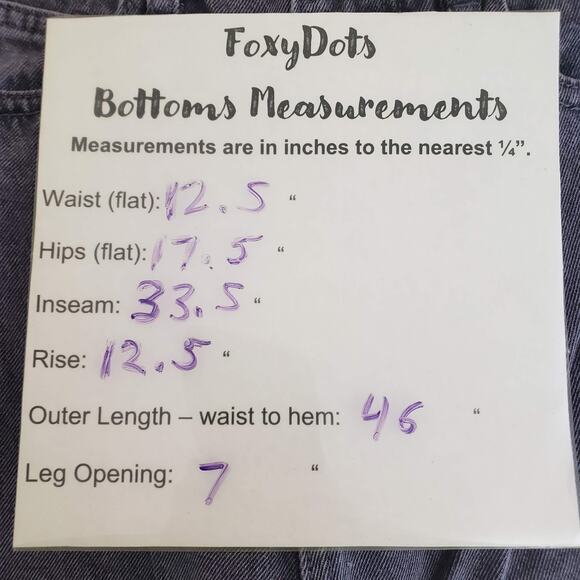 FoxyDots
Bottoms Measurements
Measurements are in inches to the nearest ¼”.
Waist (flat): 12.5 “
Hips (flat): 17.5 “
Inseam: 33.5 “
Rise: 12.5 “
Outer Length – waist to hem: 46 “
Leg Opening: 7 “